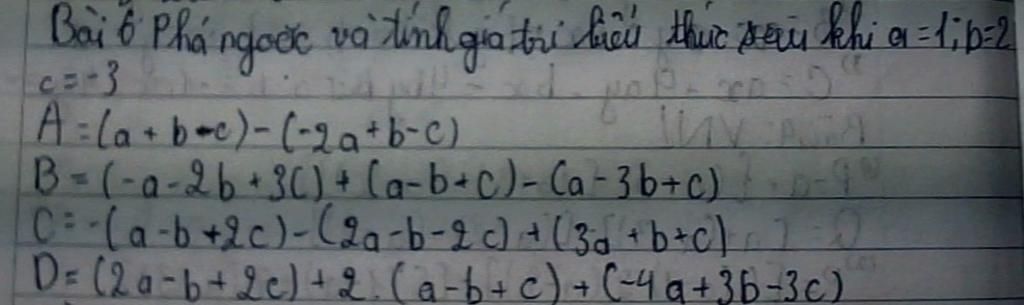 Bài 6 Phá ngoặc và tính giá trị biểu thức sau khi a=1; b=2
c=-3
A=(a+b-c)-(-2a+b-c)
B=(-a-2b+3c)+(a-b+c)-(a-3b+c)
C=-(a-b+2c)-(2a-b-2c)+(3a+b+c)
D=(2a-b+2c)+2.(a-b+c)+(-4a+3b-3c)